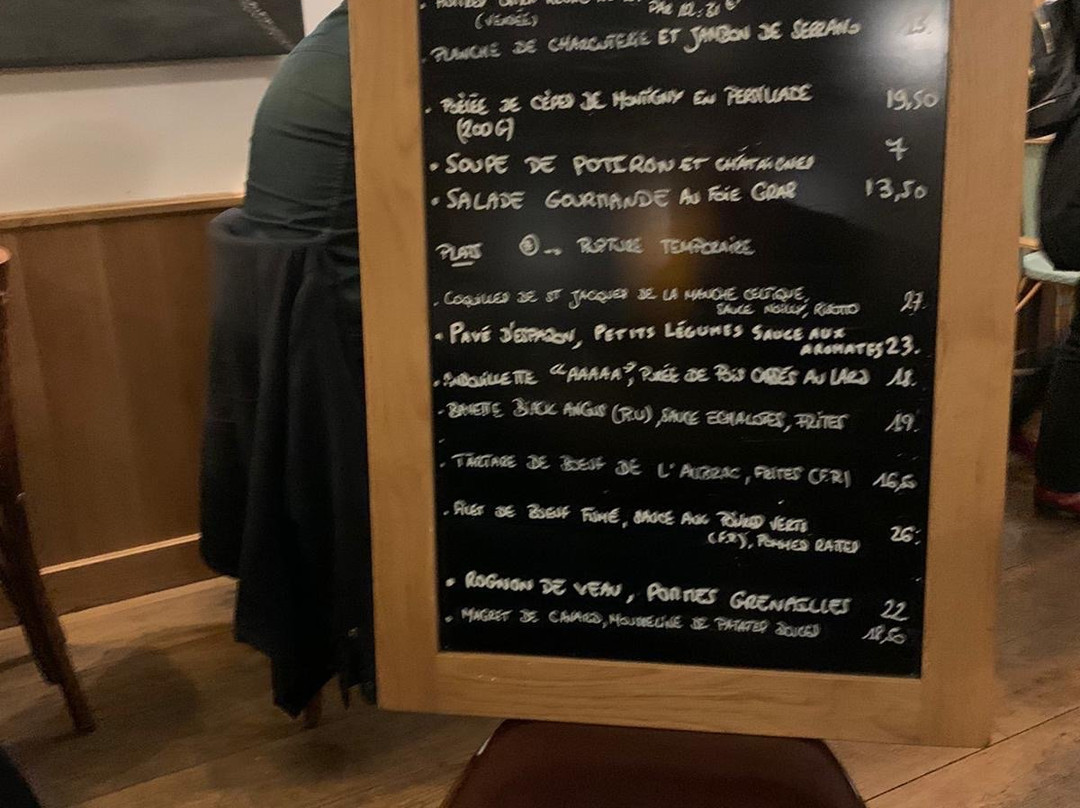 (VENDÉE) PAR 12.
. PLANCHE DE CHARCUTERIE ET JAMBON DE SERRANO 15.
. POÊLÉE DE CÈPES DE MONTIGNY EN PERSILLADE 19,50
(200 G)
. SOUPE DE POTIRON ET CHÂTAIGNES 7
. SALADE GOURMANDE AU FOIE GRAS 13,50
PLATS → RUPTURE TEMPORAIRE
. COQUILLES DE ST JACQUES DE LA MANCHE CELTIQUE, 27.
SAUCE NOILLY, RISOTTO
. PAVÉ D'ESPADON, PETITS LÉGUMES SAUCE AUX
AROMATES 23.
. ANDOUILLETTE "AAAAA", PURÉE DE POIS CASSÉS AU LARD 18.
. BAVETTE BLACK ANGUS (R.U), SAUCE ECHALOTES, FRITES 19.
. TARTARE DE BOEUF DE L'AUBRAC, FRITES (FR) 16,50
. FILET DE BOEUF FUMÉ, SAUCE AUX POIVRES VERTS 26.
(FR), POMMES RATTES
. ROGNON DE VEAU, POMMES GRENAILLES 22
. MAGRET DE CANARD, MOUSSELINE DE PATATES DOUCES 18,50